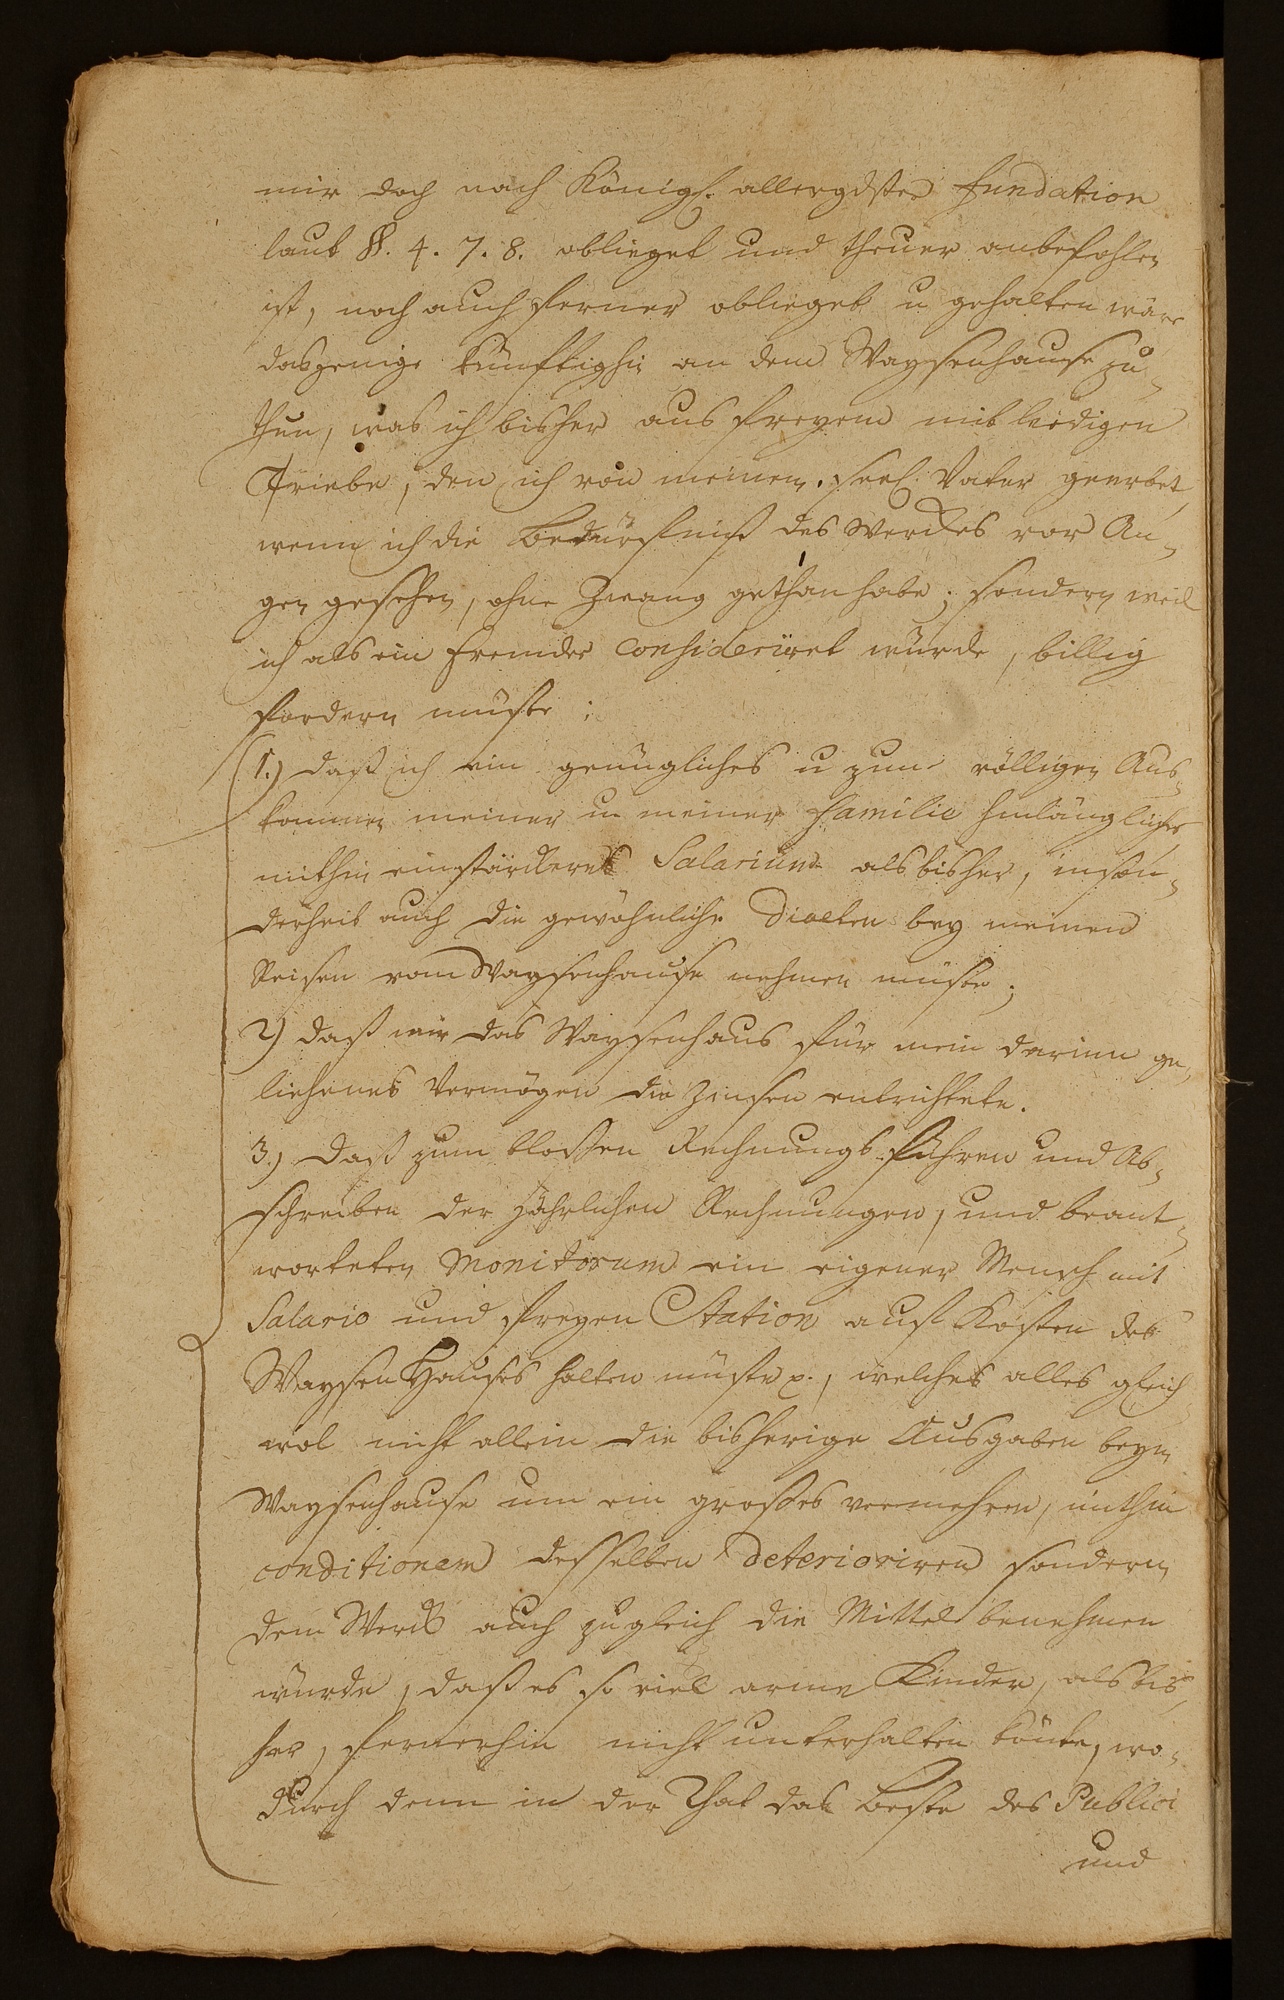 mir doch nach Königl. allergdster Fundation
laut §§. 4. 7. 8. oblieget und theuer anbefohlen
ist, noch auch ferner oblieget u gehalten wäre
dasjenige künftighin an dem Waysenhause zu
thun, was ich bisher aus freyem mitleidigen
Triebe, den ich von meinem seel. Vater geerbet,
wenn ich die Bedürfniß des Werckes vor Au-
gen gesehen, ohne Zwang gethan habe; sondern weil
ich als ein Fremder consideriret würde, billig
fordern müste:
1.) daß ich ein genügliches u zum völligen Aus-
kommen meiner u meiner Familie hinlängliches
mithin ein stärckeres Salarium als bisher, inson-
derheit auch die gewöhnliche Diaeten bey meinen
Reisen vom Waysenhause nehmen müste;
2) daß mir das Waysenhaus für mein darinn ge-
liehenes Vermögen die Zinsen entrichtete.
3.) daß zum blossen Rechnungs-führen und Ab-
schreiben der jährlichen Rechnungen, und beant-
worteten Monitorum ein eigener Mensch mit
Salario und freyen Station auf Kosten des
Waysen Hauses halten müste p., welches alles gleich
wol nicht allein die bisherige Ausgaben beym
Waysenhause um ein grosses vermehren, mithin
conditionem desselben deterioriren sondern
dem Werck auch zugleich die Mittel benehmen
würde, daß es so viel arme Kinder, als bis-
her, fernerhin nicht unterhalten könte, wo-
durch denn in der That das Beste des Publici
und